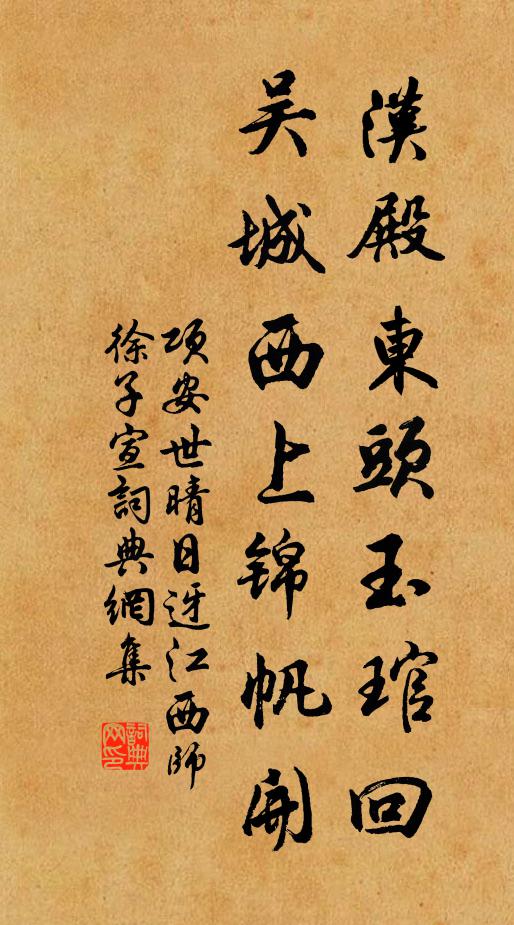 漢殿東頭玉琯回
吴城西上錦帆開
項安世晴日迓江西師
徐子宣詞典網集
詞典網印